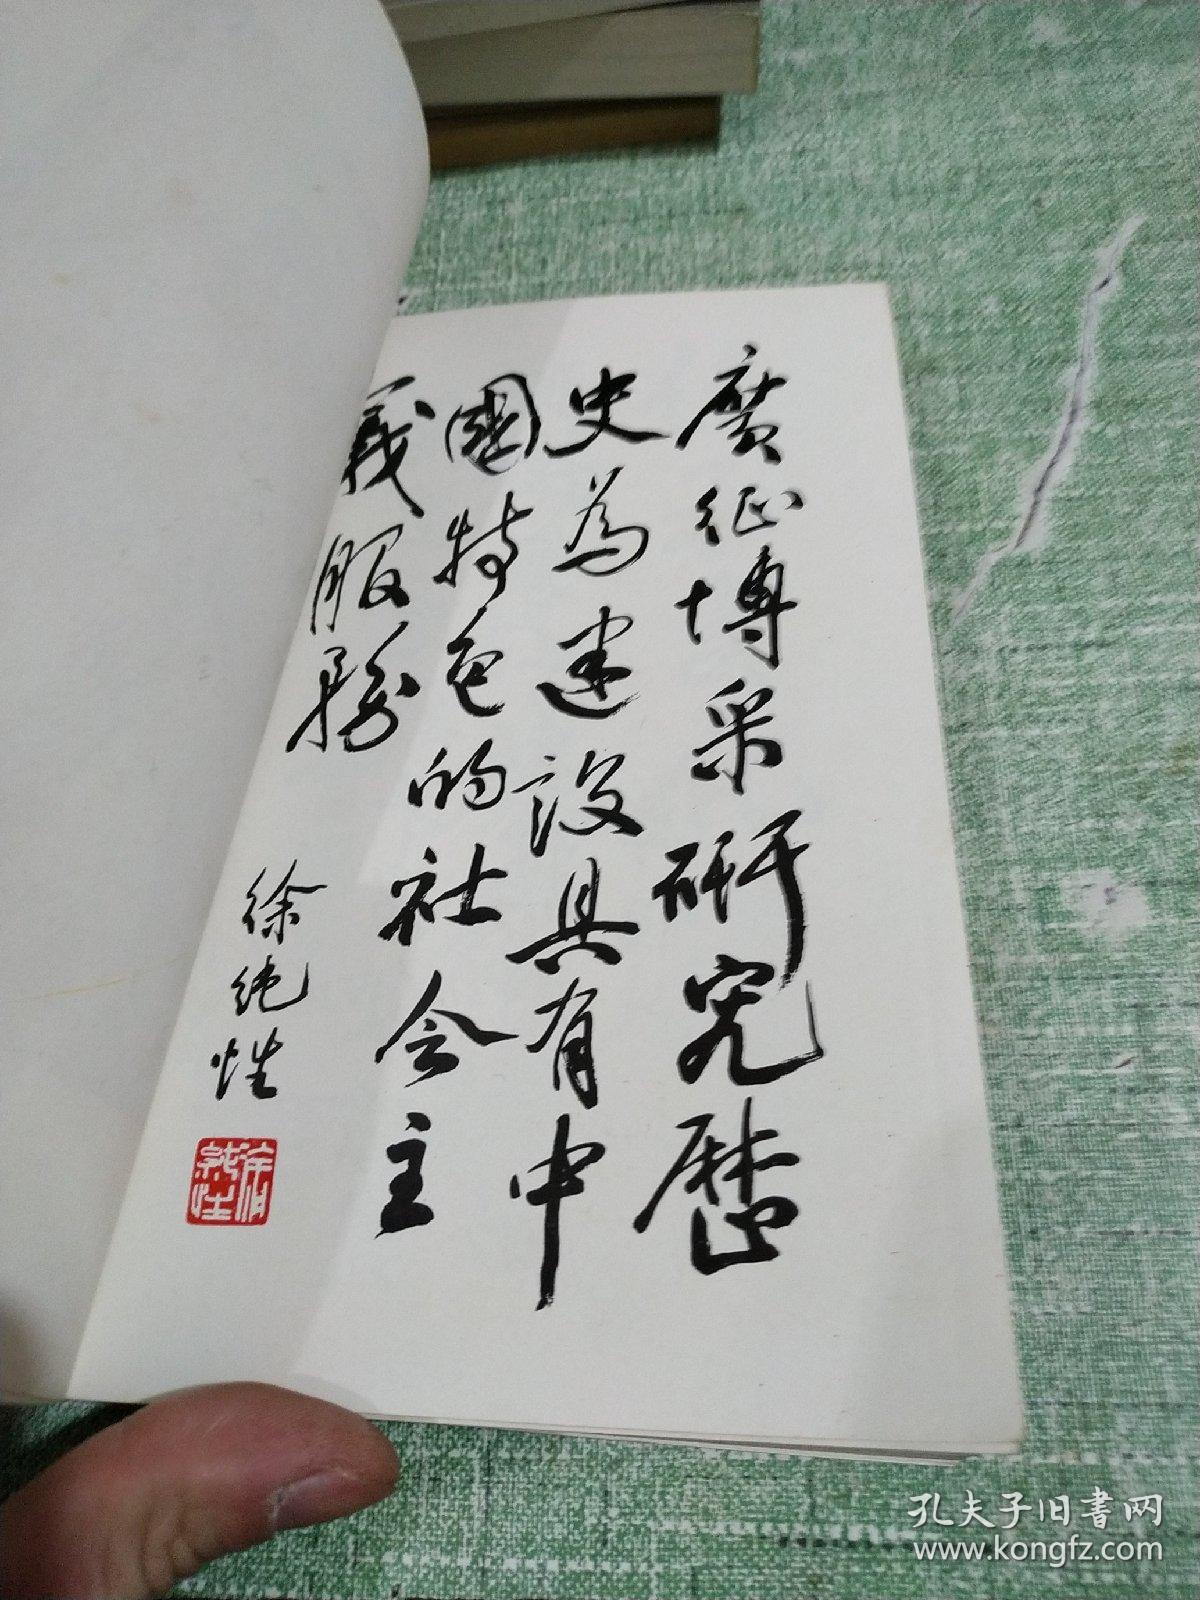 廣征博采研究歷
史為建設具有中
國特色的社会主
義服務
徐纯性
徐纯性
孔夫子旧書网
www.kongfz.com